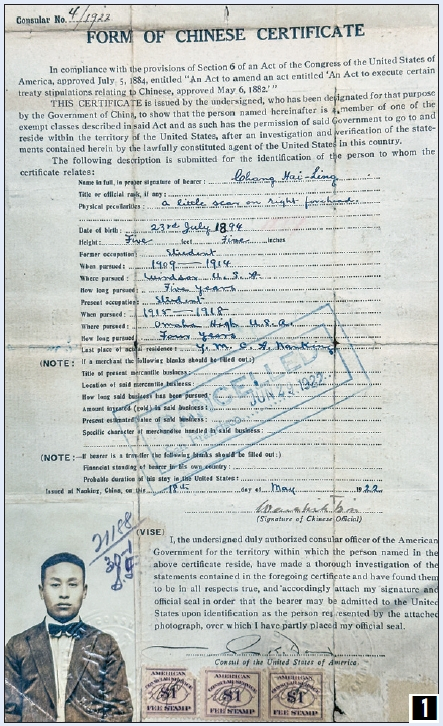 Consular No. 4/1922
FORM OF CHINESE CERTIFICATE
In compliance with the provisions of Section 6 of an Act of the Congress of the United States of
America, approved July 5, 1884, entitled "An Act to amend an act entitled 'An Act to execute certain
treaty stipulations relating to Chinese, approved May 6, 1882.'"
THIS CERTIFICATE is issued by the undersigned, who has been designated for that purpose
by the Government of China, to show that the person named hereinafter is a member of one of the
exempt classes described in said Act and as such has the permission of said Government to go to and
reside within the territory of the United States, after an investigation and verification of the state-
ments contained herein by the lawfully constituted agent of the United States in this country.
The following description is submitted for the identification of the person to whom the
certificate relates:
Name in full, in proper signature of bearer: Chang Hai-Ling
Title or official rank, if any:
Physical peculiarities: a little scar on right forehead.
Date of birth: 23rd July 1894
Height: Five feet Five inches
Former occupation: Student
When pursued: 1909 — 1914
Where pursued: Windsor U.S.A.
How long pursued: Five years
Present occupation: Student
When pursued: 1915 — 1918
Where pursued: Omaha High U.S.A.
How long pursued: Four Years
Last place of actual residence: Y. M. C. A. Nanking
(NOTE: If a merchant the following blanks should be filled out:)
Title of present mercantile business:
Location of said mercantile business:
How long said business has been pursued:
Amount invested (gold) in said business:
Present estimated value of said business:
Specific character of merchandise handled in said business:
CANCELLED
JUN 22 1922
(NOTE:—If bearer is a traveller the following blanks should be filled out:)
Financial standing of bearer in his own country:
Probable duration of his stay in the United States:
Issued at Nanking, China, on this 18th day of May 1922
(Signature of Chinese Official)
(VISE)
I, the undersigned duly authorized consular officer of the American
Government for the territory within which the person named in the
above certificate reside, have made a thorough investigation of the
statements contained in the foregoing certificate and have found them
to be in all respects true, and accordingly attach my signature and
official seal in order that the bearer may be admitted to the United
States upon identification as the person represented by the attached
photograph, over which I have partly placed my official seal.
Consul of the United States of America.
21188
AMERICAN
CONSULAR SERVICE
$1
FEE STAMP
AMERICAN
CONSULAR SERVICE
$1
FEE STAMP
AMERICAN
CONSULAR SERVICE
$1
FEE STAMP
1